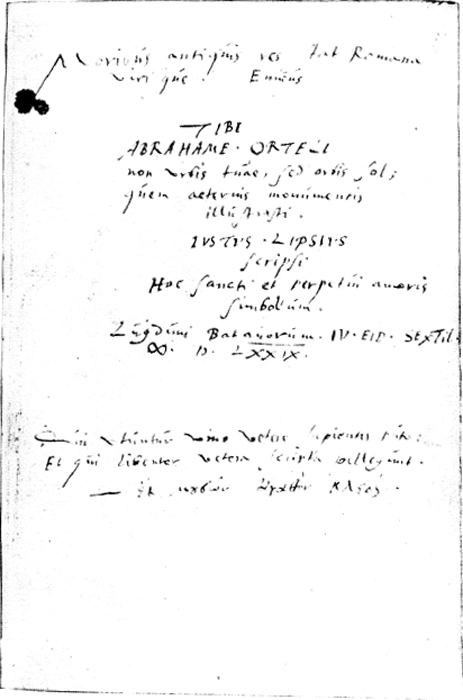 Moribus antiquis res stat Romana
virique. Ennius
TIBI
ABRAHAME · ORTELI
non orbis tuae, sed orbis sol;
quem aeternis monumentis
illustrasti.
IVSTVS · LIPSIVS
scripsi
Hoc sancti et perpetui amoris
simbolum.
Lugduni Batavorum. IV. EID. SEXTIL.
∞. D. LXXIX.
Qui utuntur vino vetere sapientes puto:
Et qui libenter vetera scripta